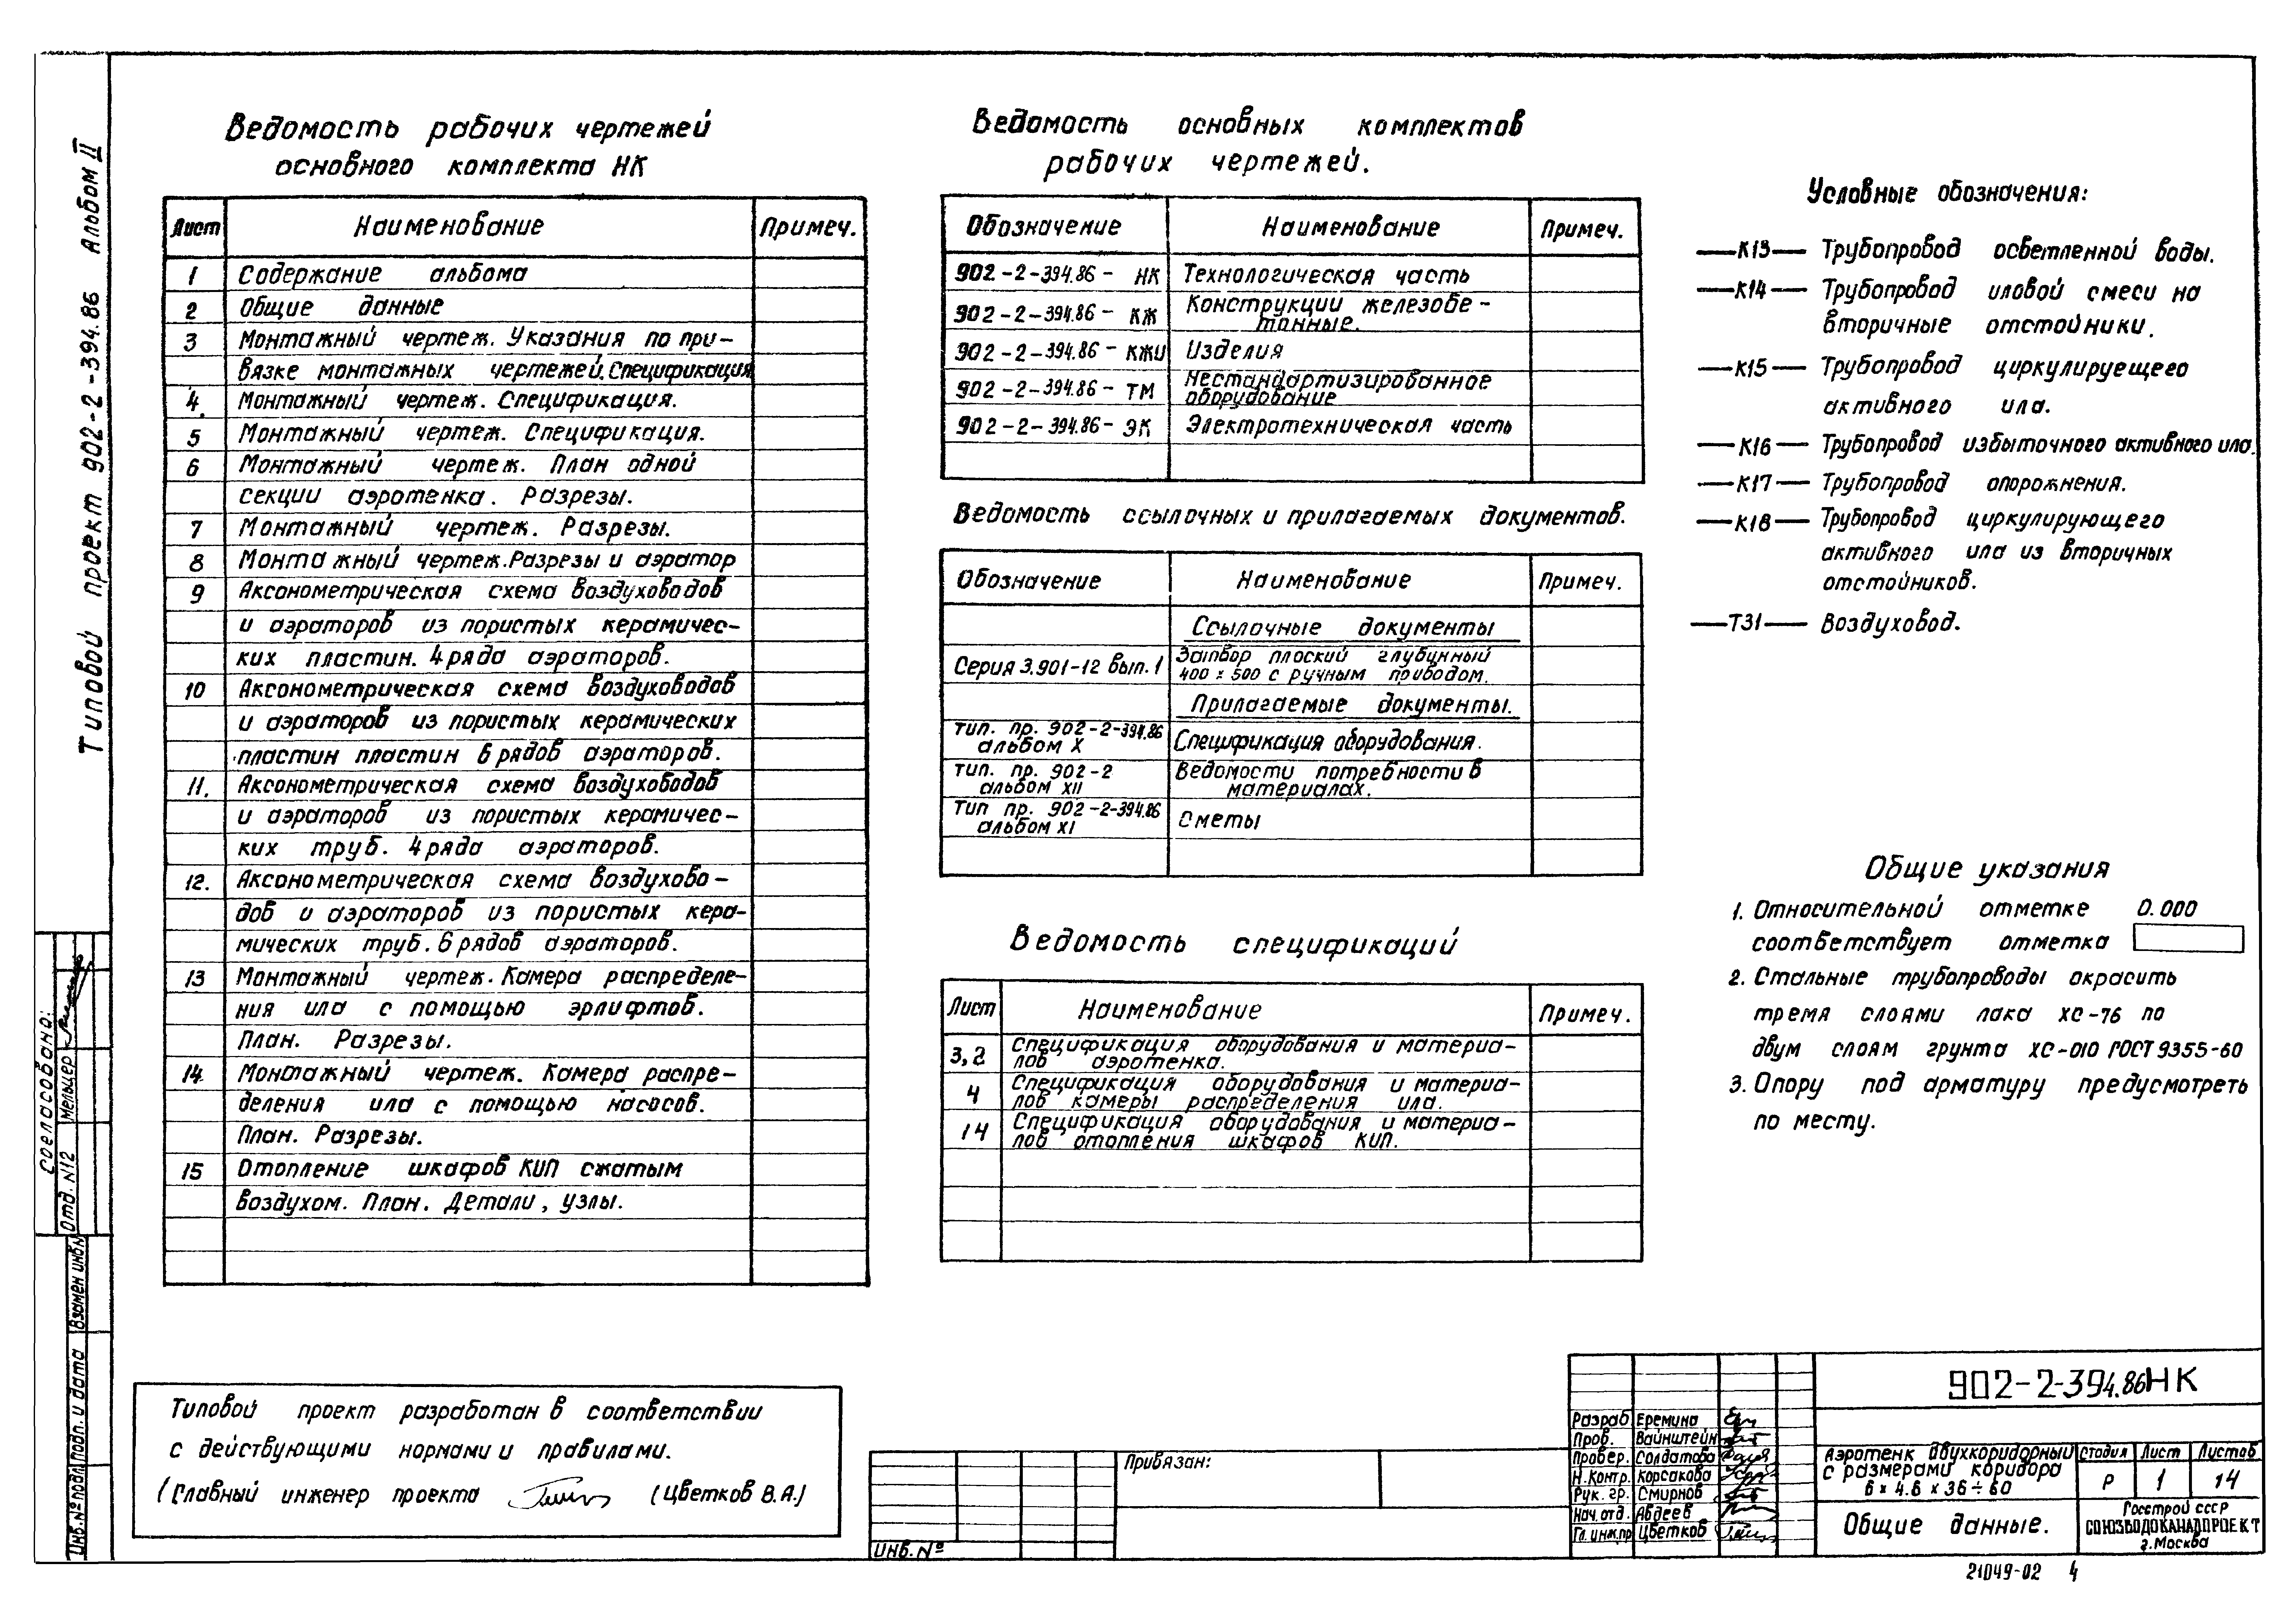 Типовой проект 902-2-394.86 Альбом II
Ведомость рабочих чертежей
основного комплекта НК
Лист Наименование Примеч.
1 Содержание альбома
2 Общие данные
3 Монтажный чертеж. Указания по при-
вязке монтажных чертежей. Спецификация
4. Монтажный чертеж. Спецификация.
5 Монтажный чертеж. Спецификация.
6 Монтажный чертеж. План одной
секции аэротенка. Разрезы.
7 Монтажный чертеж. Разрезы.
8 Монтажный чертеж. Разрезы и аэратор
9 Аксонометрическая схема воздуховодов
и аэраторов из пористых керамичес-
ких пластин. 4 ряда аэраторов.
10 Аксонометрическая схема воздуховодов
и аэраторов из пористых керамических
пластин пластин 6 рядов аэраторов.
11. Аксонометрическая схема воздуховодов
и аэраторов из пористых керамичес-
ких труб. 4 ряда аэраторов.
12. Аксонометрическая схема воздухово-
дов и аэраторов из пористых кера-
мических труб. 6 рядов аэраторов.
13 Монтажный чертеж. Камера распределе-
ния ила с помощью эрлифтов.
План. Разрезы.
14 Монтажный чертеж. Камера распре-
деления ила с помощью насосов.
План. Разрезы.
15 Отопление шкафов КИП сжатым
воздухом. План. Детали, узлы.
Типовой проект разработан в соответствии
с действующими нормами и правилами.
(Главный инженер проекта (Цветков В.А.)
Ведомость основных комплектов
рабочих чертежей.
Обозначение Наименование Примеч.
902-2-394.86- НК Технологическая часть
902-2-394.86- КЖ Конструкции железобе-
тонные.
902-2-394.86- КЖИ Изделия
902-2-394.86- ТМ Нестандартизированное
оборудование
902-2-394.86- ЭК Электротехническая часть
Ведомость ссылочных и прилагаемых документов.
Обозначение Наименование Примеч.
Ссылочные документы
Серия 3.901-12 вып. 1 Затвор плоский глубинный
400 х 500 с ручным приводом.
Прилагаемые документы.
Тип. пр. 902-2-394.86
альбом X Спецификация оборудования.
Тип. пр. 902-2
альбом XII Ведомости потребности в
материалах.
Тип пр. 902-2-394.86
альбом XI Сметы
Ведомость спецификаций
Лист Наименование Примеч.
3,2 Спецификация оборудования и материа-
лов аэротенка.
4 Спецификация оборудования и материа-
лов камеры распределения ила.
14 Спецификация оборудования и материа-
лов отопления шкафов КИП.
Условные обозначения:
—К13— Трубопровод осветленной воды.
—К14— Трубопровод иловой смеси на
вторичные отстойники.
—К15— Трубопровод циркулируещего
активного ила.
—К16— Трубопровод избыточного активного ила.
—К17— Трубопровод опорожнения.
—К18— Трубопровод циркулирующего
активного ила из вторичных
отстойников.
—Т31— Воздуховод.
Общие указания
1. Относительной отметке 0.000
соответствует отметка
2. Стальные трубопроводы окрасить
тремя слоями лака ХС-76 по
двум слоям грунта ХС-010 ГОСТ 9355-60
3. Опору под арматуру предусмотреть
по месту.
Согласовано:
Отд. N12 Мельцер
Взамен инв.N
Подп. и дата
Инв.№ подл.
Привязан:
Инв.№
902-2-394.86 НК
Разраб Еремина
Пров. Вайнштейн
Провер. Солдатова
Н.Контр. Корсакова
Рук. гр. Смирнов
Нач. отд. Авдеев
Гл. инж.пр Цветков
Аэротенк двухкоридорный
с размерами коридора
6 х 4.6 х 36÷60
Стадия Лист Листов
Р 1 14
Общие данные.
Госстрой СССР
СОЮЗВОДОКАНАЛПРОЕКТ
г.Москва
21049-02 4